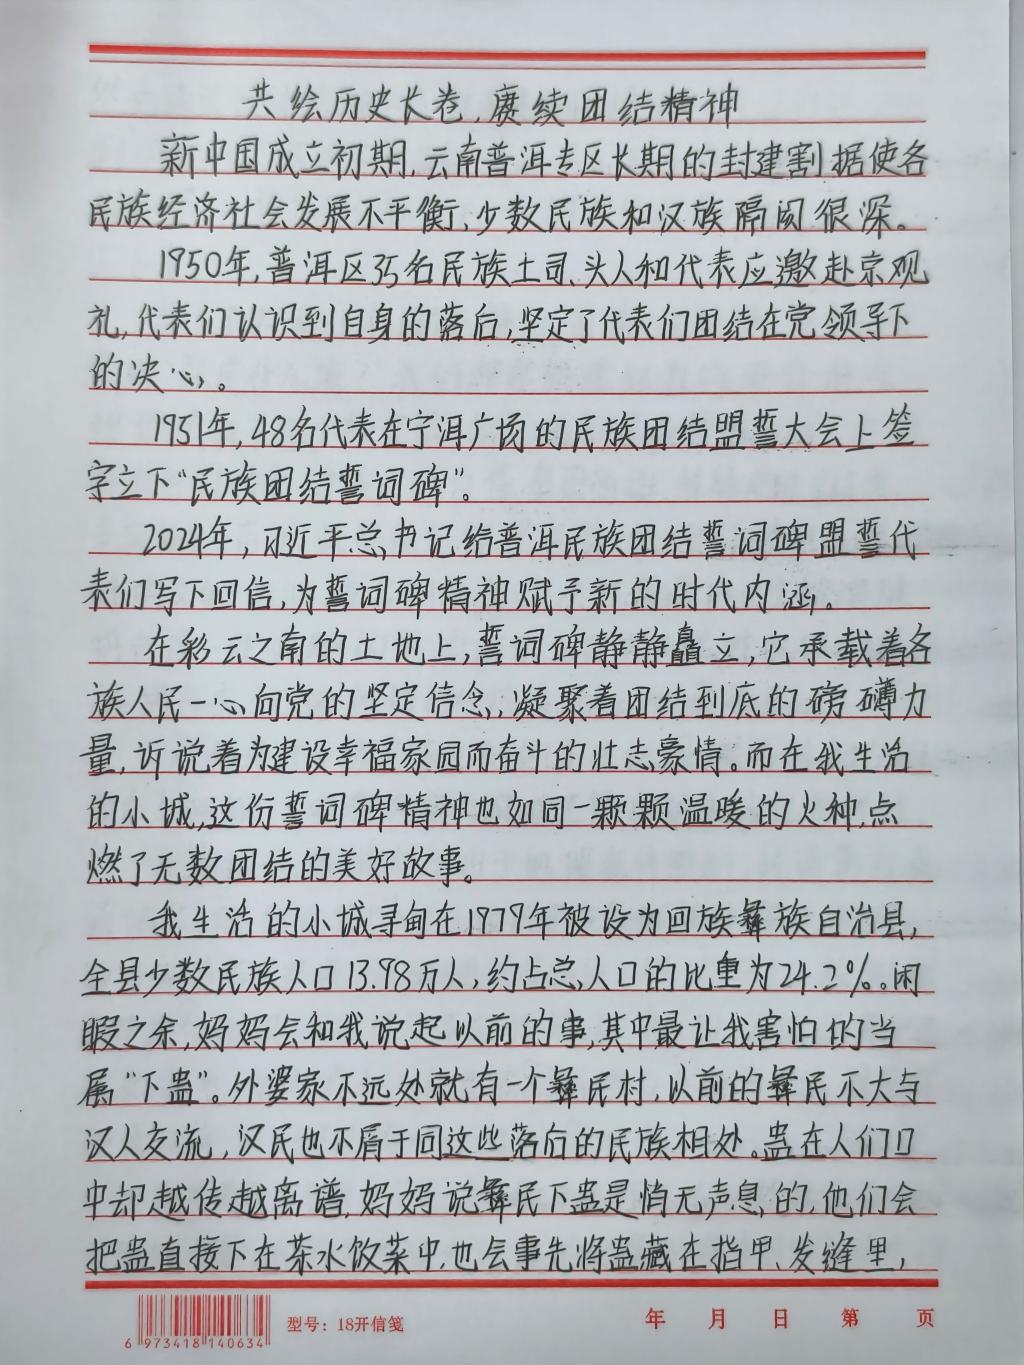 共绘历史长卷,赓续团结精神
新中国成立初期,云南普洱专区长期的封建割据使各
民族经济社会发展不平衡,少数民族和汉族隔阂很深。
1950年,普洱区35名民族土司、头人和代表应邀赴京观
礼,代表们认识到自身的落后,坚定了代表们团结在党领导下
的决心。
1951年,48名代表在宁洱广场的民族团结盟誓大会上签
字立下“民族团结誓词碑”。
2024年,习近平总书记给普洱民族团结誓词碑盟誓代
表们写下回信,为誓词碑精神赋予新的时代内涵。
在彩云之南的土地上,誓词碑静静矗立,它承载着各
族人民一心向党的坚定信念,凝聚着团结到底的磅礴力
量,诉说着为建设幸福家园而奋斗的壮志豪情。而在我生活
的小城,这份誓词碑精神也如同一颗颗温暖的火种,点
燃了无数团结的美好故事。
我生活的小城寻甸在1979年被设为回族彝族自治县,
全县少数民族人口13.98万人,约占总人口的比重为24.2%。闲
暇之余,妈妈会和我说起以前的事,其中最让我害怕的当
属“下蛊”。外婆家不远处就有一个彝民村,以前的彝民不大与
汉人交流,汉民也不屑于同这些落后的民族相处。蛊在人们口
中却越传越离谱,妈妈说彝民下蛊是悄无声息的,他们会
把蛊直接下在茶水饭菜中,也会事先将蛊藏在指甲、发缝里,
6 973418 140634
型号：18开信笺
年 月 日 第 页